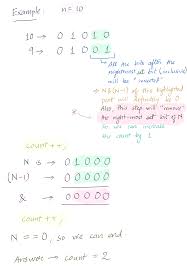 Example: n = 10
10 → 0 1 0 1 0
9 → 0 1 0 0 1
All the bits after the
right-most set bit (inclusive)
will be "inverted"
⇒ N & (N-1) of this highlighted
part will definitely be 0
Also, this step will "remove"
the right-most set bit of N
So we can increase
the count by 1
count ++,
N is → 0 1 0 0 0
(N-1) → 0 0 0 0
& → 0 0 0 0 0
count ++,
N == 0, so we can end.
Answer → count = 2